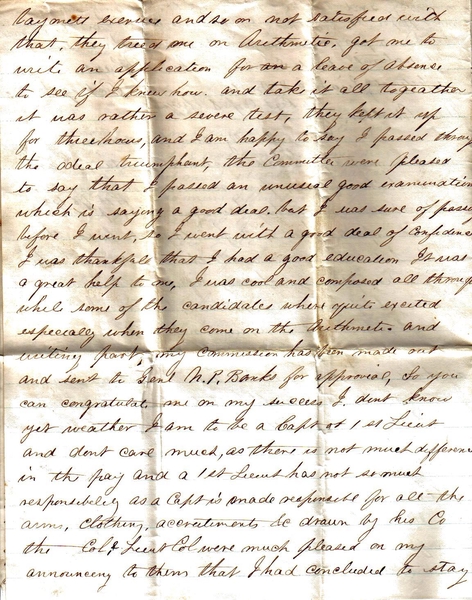 bayonets exercise and so on not satisfied with
that, they tried me on Arithmetic, got me to
write an application for an a leave of absense
to see if I knew how. and take it all togeather
it was rather a severe test, they kept it up
for three hours, and I am happy to say I passed through
the odeal triumphant, the Committee were pleased
to say that I passed an unusual good examination
which is saying a good deal. but I was sure of passing
before I went, so I went with a good deal of confidence
I was thankfull that I had a good education It was
a great help to me, I was cool and composed all through
while some of the candidates where quite excited
especially when they come on the Arithmetic and
writing part, my commission has been made out
and sent to Genl N. P. Banks for approvial, So you
can congratulate me on my success I dont know
yet weather I am to be a Capt or 1st Lieut
and dont care much, as there is not much difference
in the pay and a 1st Lieut has not so much
responsibeliy as a Capt is made responsible for all the
arms, clothing, accoutrements &c drawn by his Co
the Col & Lieut Col were much pleased on my
announceing to them that I had concluded to stay